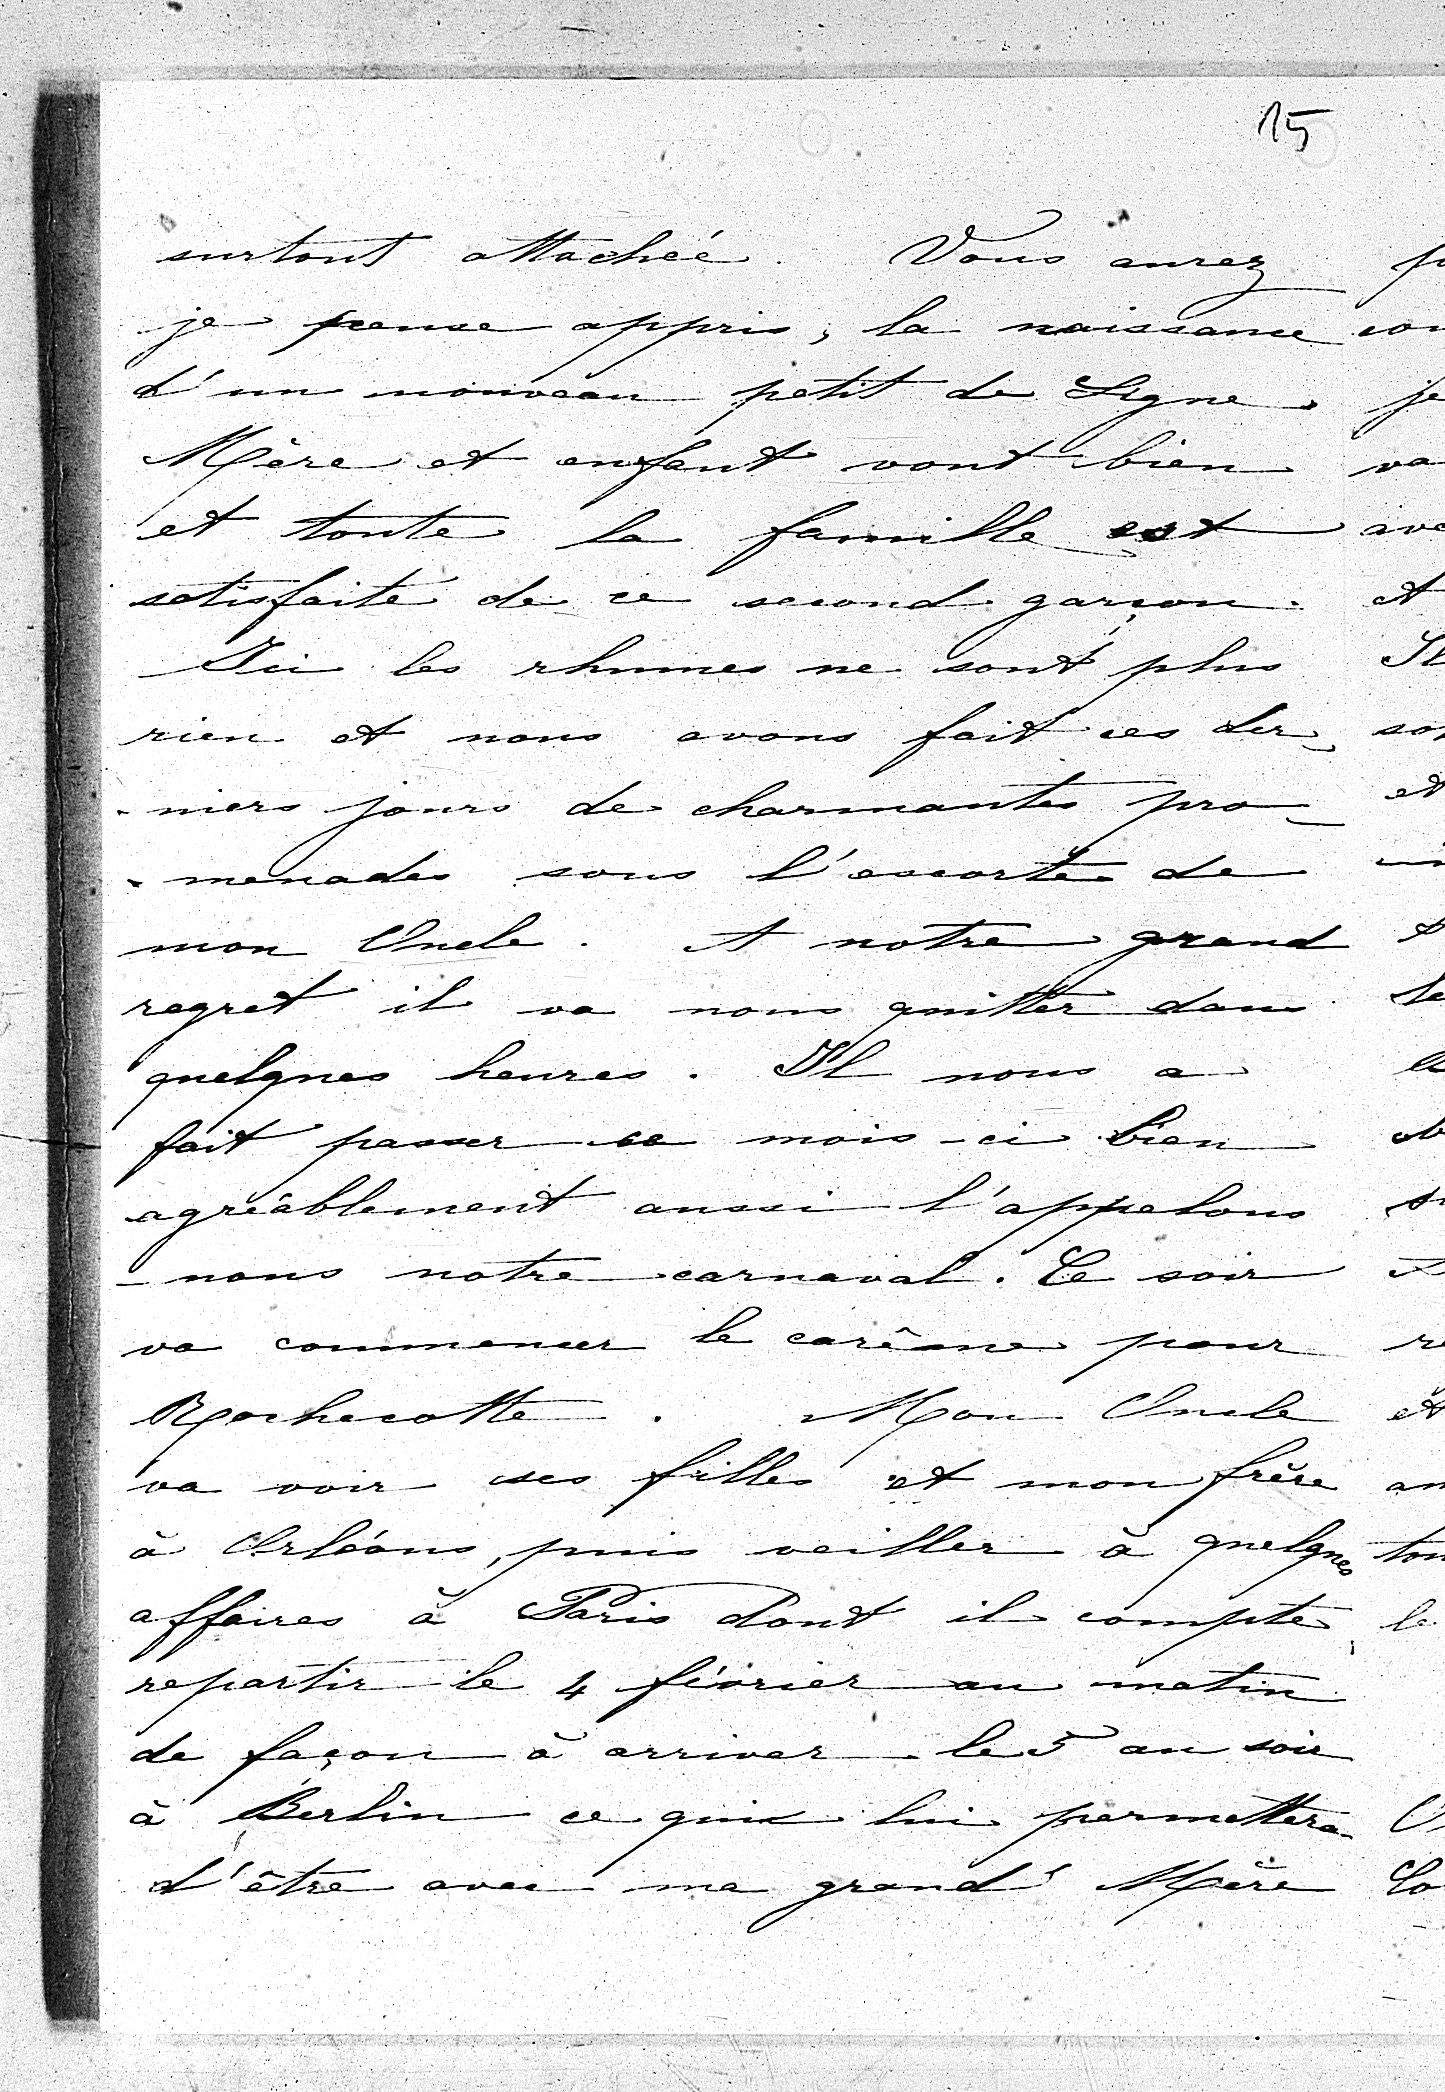 15
surtout attachée. Vous aurez
je pense appris, la naissance
d'un nouveau petit de Ligne.
Mère et enfant vont bien
et toute la famille est
satisfaite de ce second garçon.
Ici les rhumes ne sont plus
rien et nous avons fait ces der-
-niers jours de charmantes pro-
-menades sous l'escorte de
mon Oncle. A notre grand
regret il va nous quitter dans
quelques heures. Il nous a
fait passer ce mois-ci bien
agréablement aussi l'appelons
-nous notre carnaval. Ce soir
va commencer le carême pour
Rochecotte. Mon Oncle
va voir ses filles et mon frère
à Orléans, puis veiller à quelques
affaires à Paris dont il compte
repartir le 4 février au matin
de façon à arriver le 5 au soir
à Berlin ce qui lui permettera
d'être avec ma grand' Mère